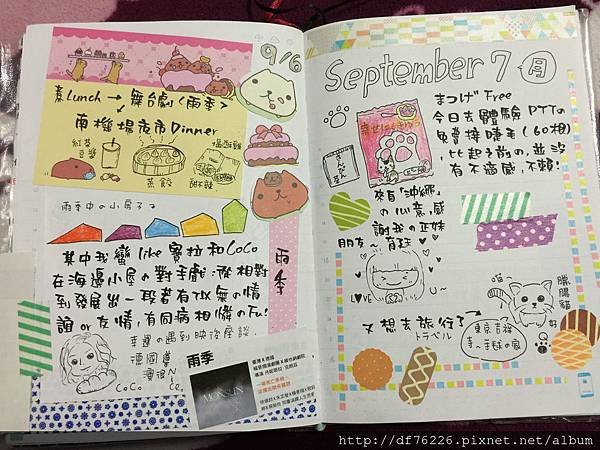 9/6
素Lunch → 舞台劇<雨季>
→ 南機場夜市Dinner
紅茶
豆漿
蒸餃
甜不辣
雨季中の小房子
其中我蠻like蜜拉和CoCo
在海邊小屋の對手戲,從相對
到發展出一段若有似無の情
誼or友情,有同病相憐のfu!
幸運の遇到映後座談,
CoCo
雨季
雨季
MONSUN
September 7 月
まつげ Free
今日去體驗PTTの
免費接睫毛(60根)
,比起之前の,並沒
有不適感,不賴!
さんびき
來自「沖繩」
の心意,感
謝我の正妹
朋友~
LOVE
U~
喵~
臘腸貓!
好
又想去旅行了
トラベル
東京吉祥
http://df76226.pixnet.net/album